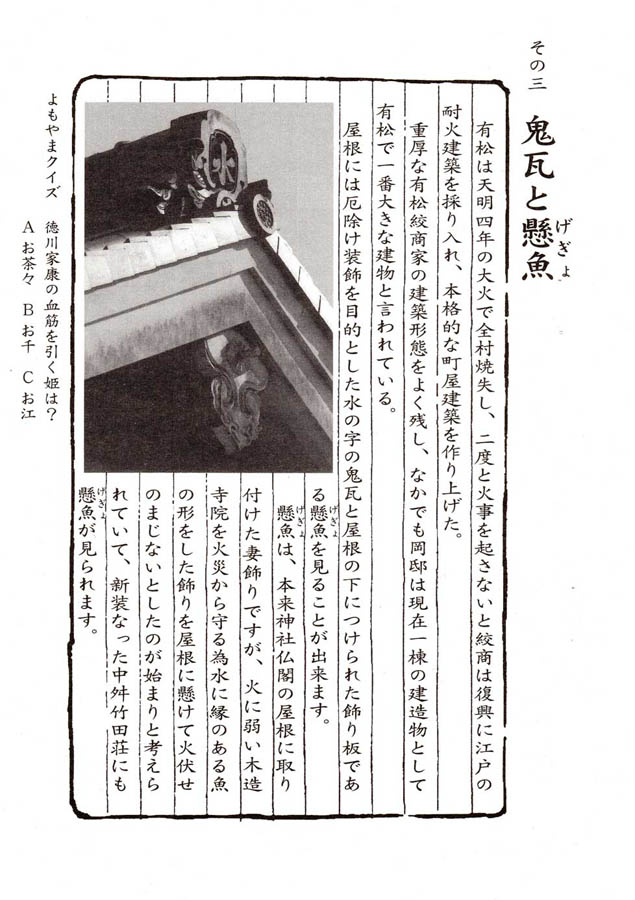 その三　鬼瓦と懸魚
げぎょ
有松は天明四年の大火で全村焼失し、二度と火事を起さないと絞商は復興に江戸の
耐火建築を採り入れ、本格的な町屋建築を作り上げた。
重厚な有松絞商家の建築形態をよく残し、なかでも岡邸は現在一棟の建造物として
有松で一番大きな建物と言われている。
屋根には厄除け装飾を目的とした水の字の鬼瓦と屋根の下につけられた飾り板であ
る懸魚を見ることが出来ます。
げぎょ
懸魚は、本来神社仏閣の屋根に取り
げぎょ
付けた妻飾りですが、火に弱い木造
寺院を火災から守る為水に縁のある魚
の形をした飾りを屋根に懸けて火伏せ
のまじないとしたのが始まりと考えら
れていて、新装なった中舛竹田荘にも
懸魚が見られます。
げぎょ
水
よもやまクイズ　徳川家康の血筋を引く姫は？
A お茶々　B お千　C お江